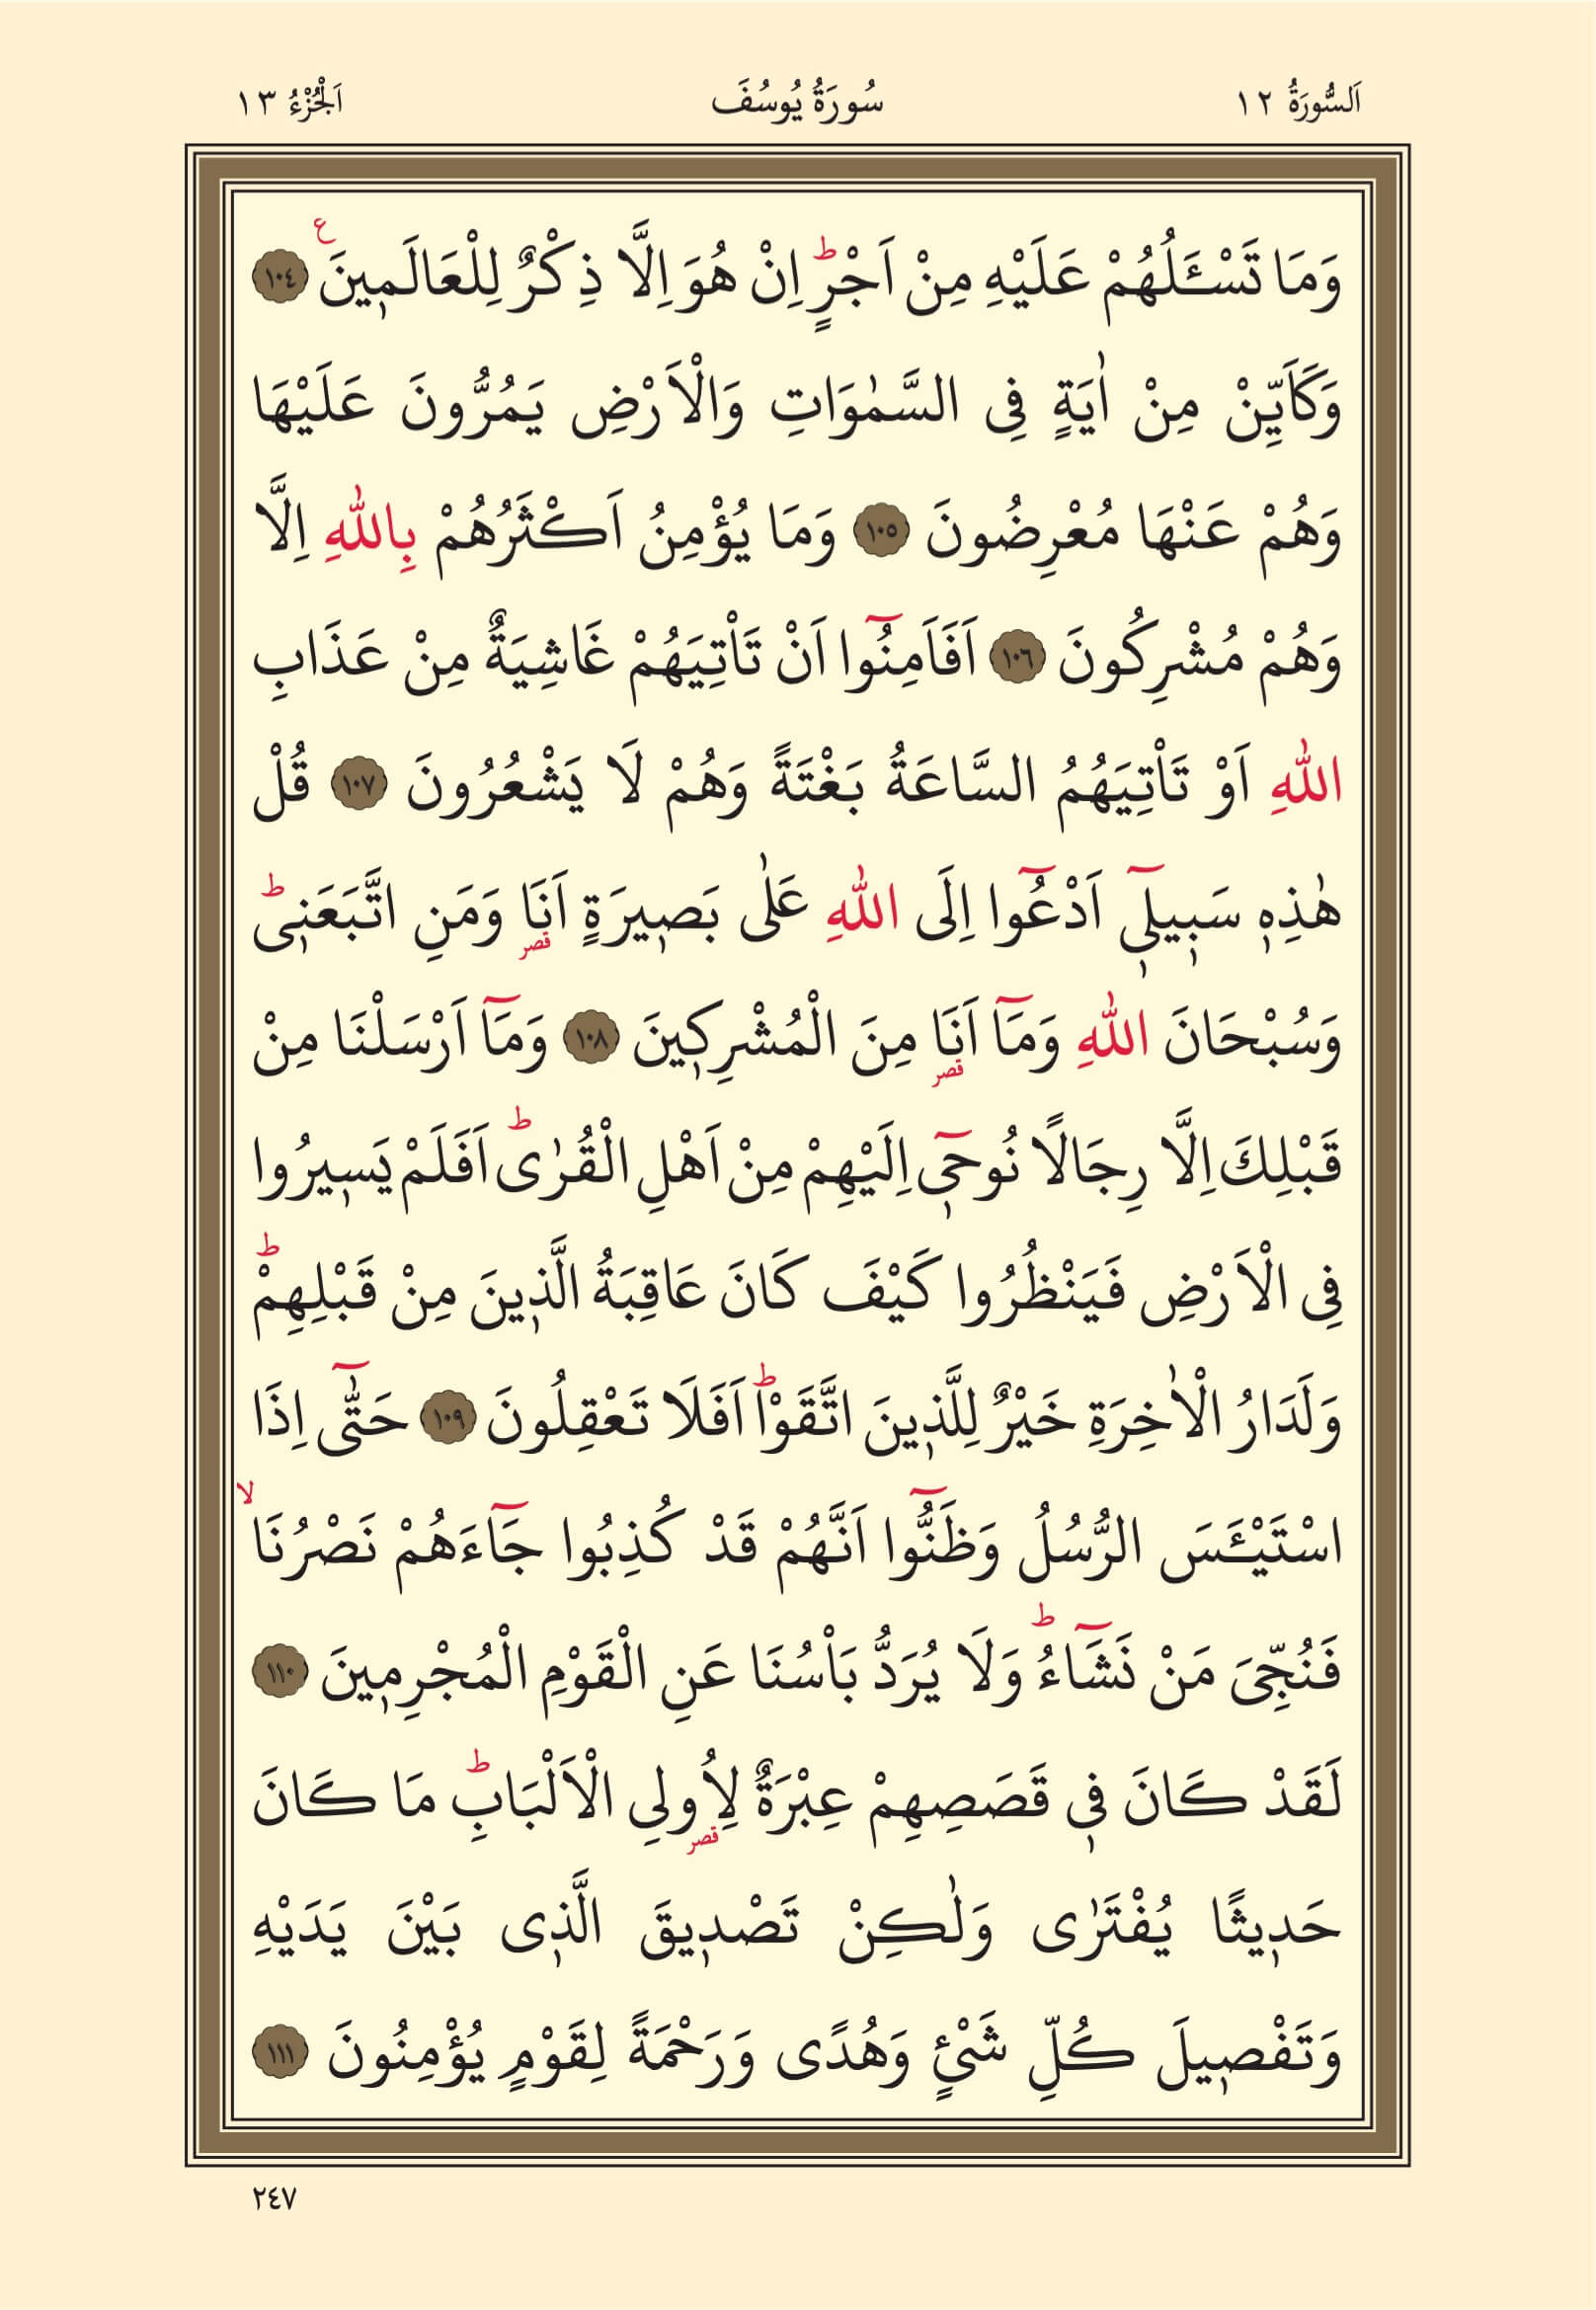 اَلسُّورَةُ ١٢ سُورَةُ يُوسُفَ اَلْجُزْءُ ١٣
وَمَا تَسْـَٔلُهُمْ عَلَيْهِ مِنْ اَجْرٍۜ اِنْ هُوَ اِلَّا ذِكْرٌ لِلْعَالَم۪ينَ۟ ﴿١٠٤﴾
وَكَاَيِّنْ مِنْ اٰيَةٍ فِى السَّمٰوَاتِ وَالْاَرْضِ يَمُرُّونَ عَلَيْهَا
وَهُمْ عَنْهَا مُعْرِضُونَ ﴿١٠٥﴾ وَمَا يُؤْمِنُ اَكْثَرُهُمْ بِاللّٰهِ اِلَّا
وَهُمْ مُشْرِكُونَ ﴿١٠٦﴾ اَفَاَمِنُٓوا اَنْ تَاْتِيَهُمْ غَاشِيَةٌ مِنْ عَذَابِ
اللّٰهِ اَوْ تَاْتِيَهُمُ السَّاعَةُ بَغْتَةً وَهُمْ لَا يَشْعُرُونَ ﴿١٠٧﴾ قُلْ
هٰذِه۪ سَب۪يل۪ٓى اَدْعُٓوا اِلَى اللّٰهِ عَلٰى بَص۪يرَةٍ اَنَا۬ وَمَنِ اتَّبَعَن۪ىۜ
وَسُبْحَانَ اللّٰهِ وَمَٓا اَنَا۬ مِنَ الْمُشْرِك۪ينَ ﴿١٠٨﴾ وَمَٓا اَرْسَلْنَا مِنْ
قَبْلِكَ اِلَّا رِجَالًا نُوح۪ٓى اِلَيْهِمْ مِنْ اَهْلِ الْقُرٰىۜ اَفَلَمْ يَس۪يرُوا
فِى الْاَرْضِ فَيَنْظُرُوا كَيْفَ كَانَ عَاقِبَةُ الَّذ۪ينَ مِنْ قَبْلِهِمْۜ
وَلَدَارُ الْاٰخِرَةِ خَيْرٌ لِلَّذ۪ينَ اتَّقَوْاۜ اَفَلَا تَعْقِلُونَ ﴿١٠٩﴾ حَتّٰٓى اِذَا
اسْتَيْـَٔسَ الرُّسُلُ وَظَنُّٓوا اَنَّهُمْ قَدْ كُذِبُوا جَٓاءَهُمْ نَصْرُنَاۙ
فَنُجِّىَ مَنْ نَشَٓاءُۜ وَلَا يُرَدُّ بَاْسُنَا عَنِ الْقَوْمِ الْمُجْرِم۪ينَ ﴿١١٠﴾
لَقَدْ كَانَ ف۪ى قَصَصِهِمْ عِبْرَةٌ لِاُو۬لِى الْاَلْبَابِۜ مَا كَانَ
حَد۪يثًا يُفْتَرٰى وَلٰكِنْ تَصْد۪يقَ الَّذ۪ى بَيْنَ يَدَيْهِ
وَتَفْص۪يلَ كُلِّ شَىْءٍ وَهُدًى وَرَحْمَةً لِقَوْمٍ يُؤْمِنُونَ ﴿١١١﴾
٢٤٧